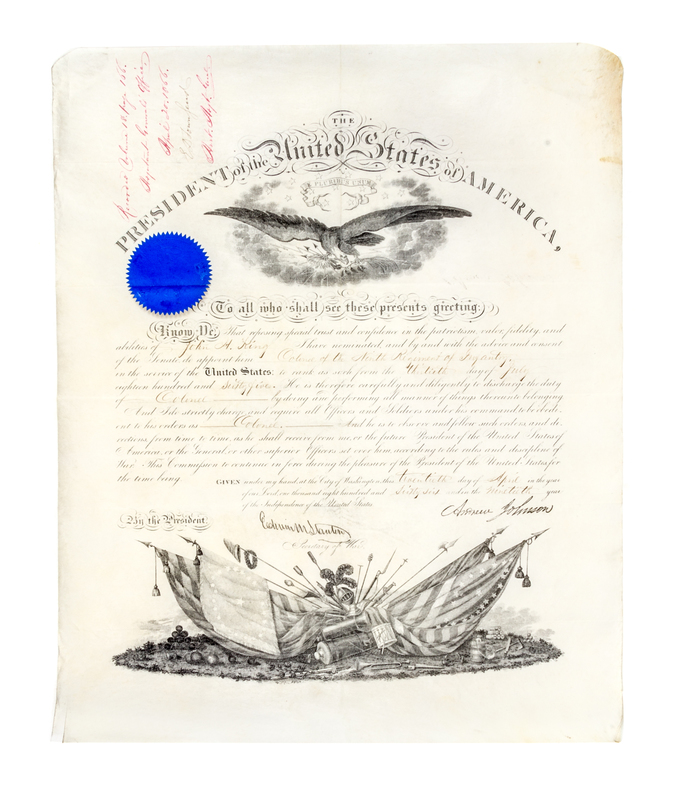 THE
PRESIDENT of the United States of AMERICA,
E PLURIBUS UNUM
To all who shall see these presents greeting:
Know Ye, That reposing special trust and confidence in the patriotism, valor, fidelity, and
abilities of John H. King I have nominated, and by and with the advice and consent
of the Senate do appoint him Colonel of the Ninth Regiment of Infantry
in the service of the United States: to rank as such from the day of July
eighteen hundred and sixty five. He is therefore carefully and diligently to discharge the duty
of Colonel by doing and performing all manner of things thereunto belonging.
And I do strictly charge, and require all Officers and Soldiers under his command to be obedi-
ent to his orders as Colonel. And he is to observe and follow such orders, and di-
rections from time to time, as he shall receive from me, or the future President of the United States of
America, or the General, or other superior Officers set over him, according to the rules and discipline of
War. This Commission to continue in force during the pleasure of the President of the United States, for
the time being.
GIVEN under my hand, at the City of Washington, this twentieth day of April in the year
of our Lord, one thousand eight hundred and sixty six and in the ninetieth year
of the Independence of the United States.
By the President
Andrew Johnson
Edwin M Stanton
Secretary of War.